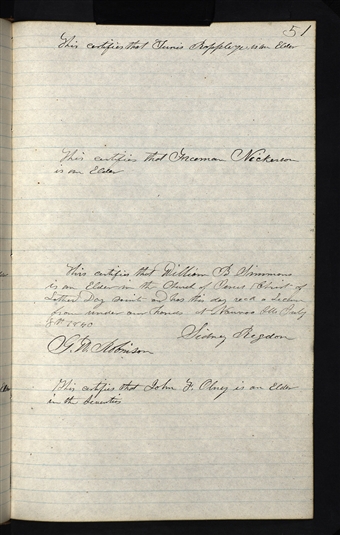 51
This certifies that Tunis Rappleye is an Elder
This certifies that Freeman Nickerson
is an Elder
This certifies that William B Simmons
is an Elder in the Church of Jesus Christ of
Latter Day Saints and has this day
from under our hands at Nauvoo Ills July
8th 1840
Sidney Rigdon
G. W. Robinson
This certifies that John F. Olney is an Elder
in the